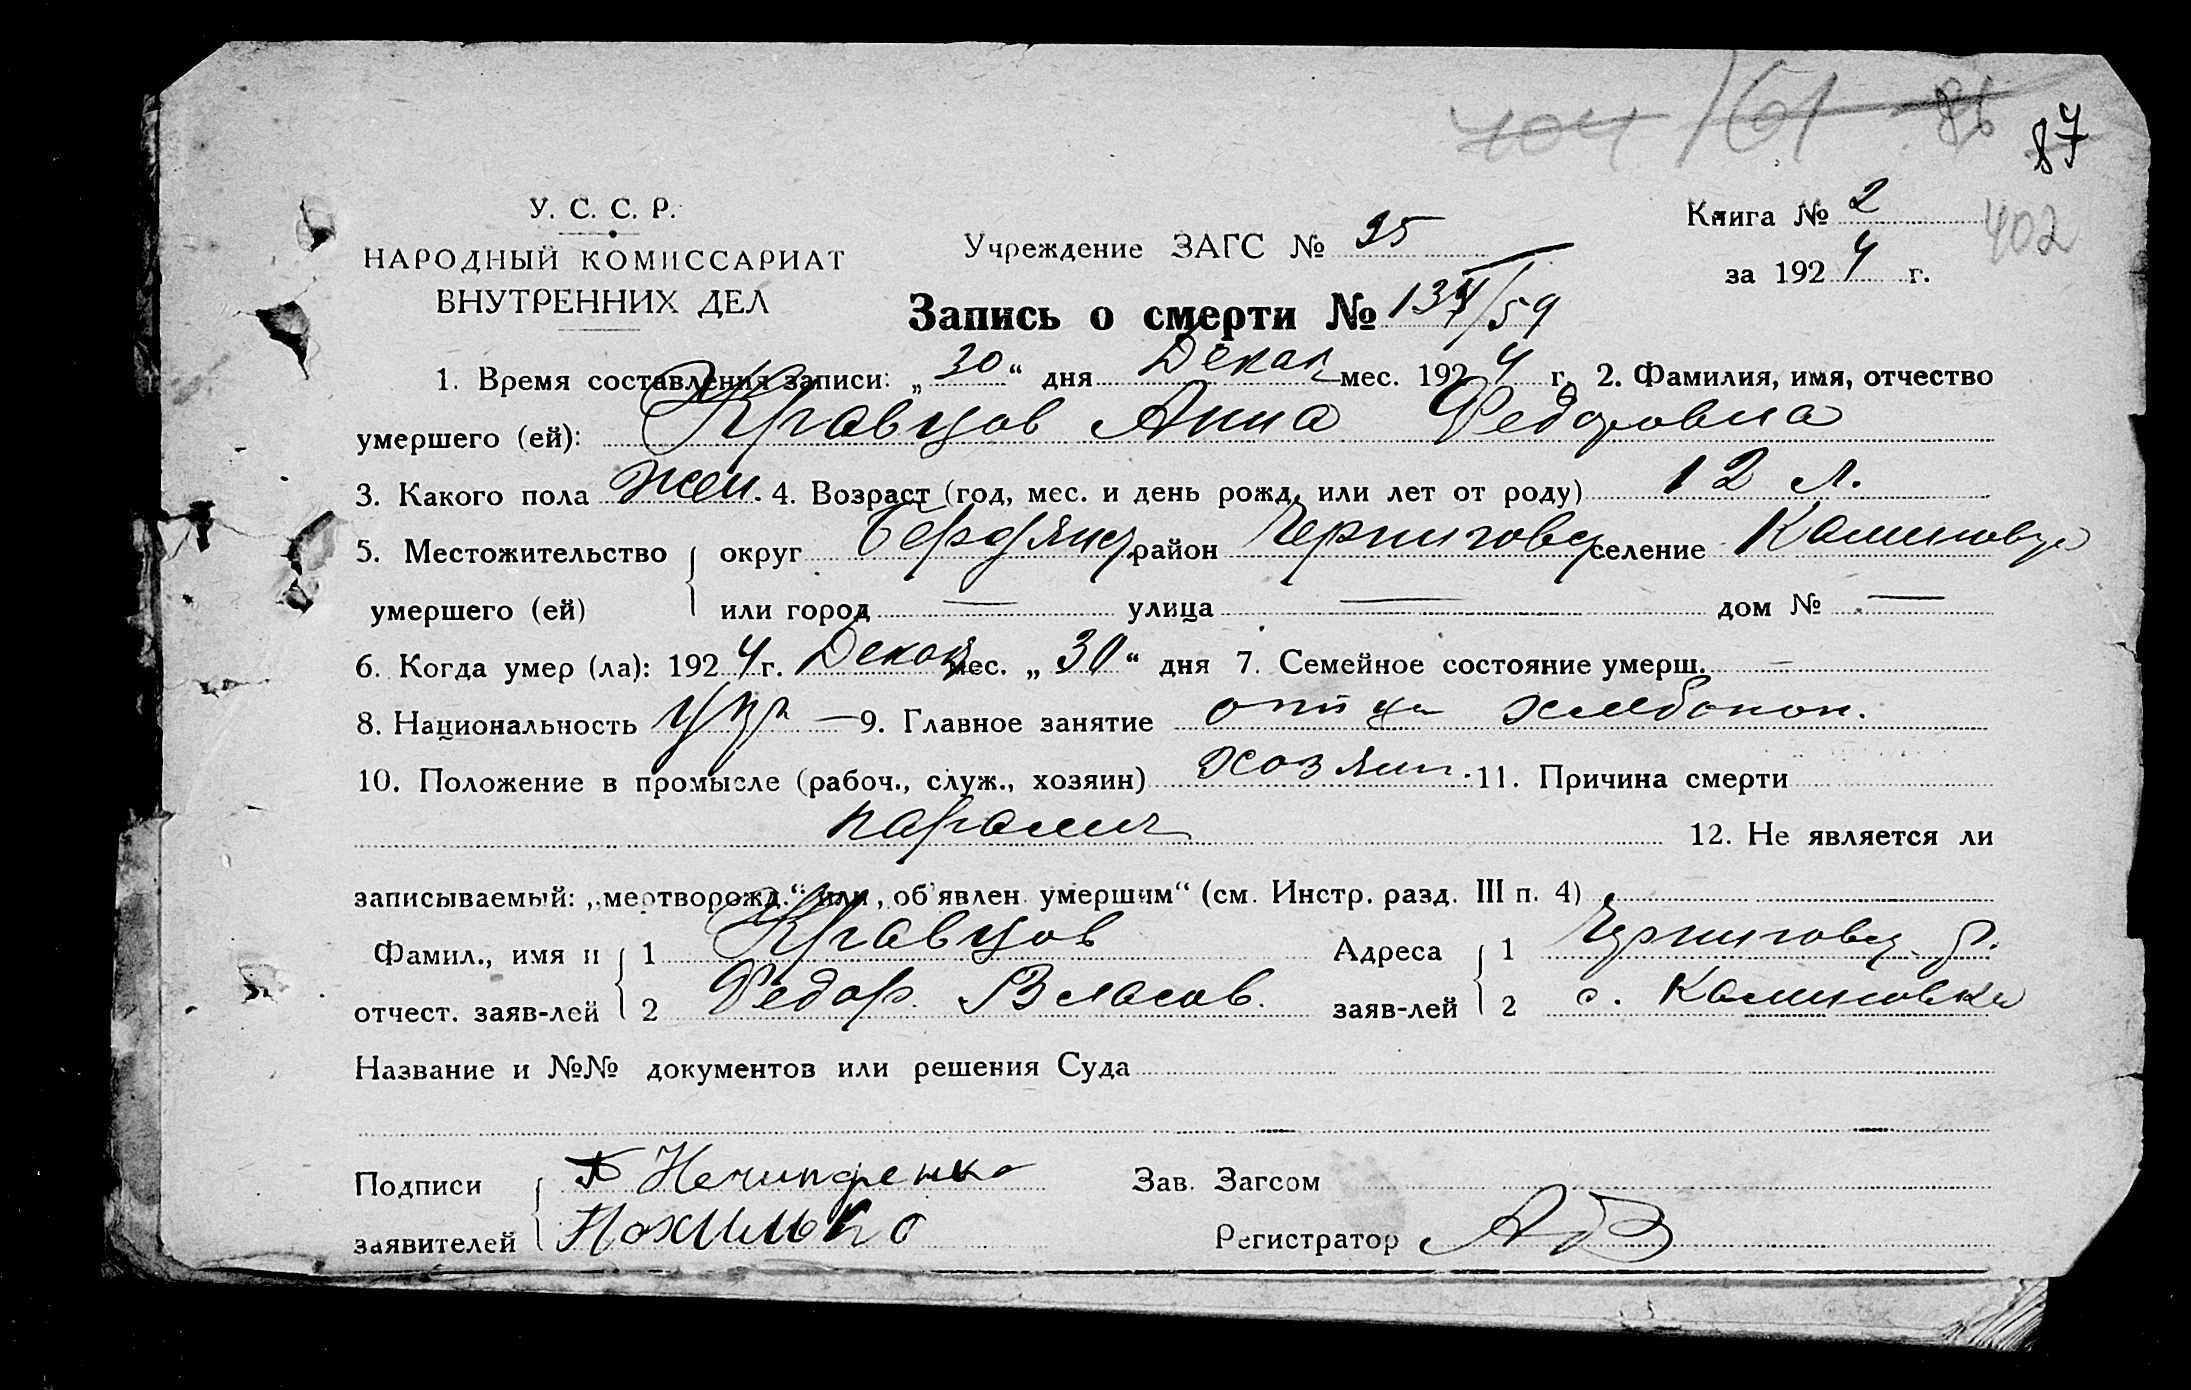 404 161 86 87
У. С. С. Р.
НАРОДНЫЙ КОМИССАРИАТ
ВНУТРЕННИХ ДЕЛ
Учреждение ЗАГС № 35
Книга № 2 402
за 1924 г.
Запись о смерти № /59
1. Время составления записи: „30“ дня Декаб мес. 1924 г. 2. Фамилия, имя, отчество
умершего (ей): Кравцов Анна Федоровна
3. Какого пола жен. 4. Возраст (год, мес. и день рожд. или лет от роду) 12 л.
5. Местожительство округ Бердянск. район Черниговск селение Калиновка
умершего (ей) или город — улица — дом № —
6. Когда умер (ла): 1924 г. Декаб мес. „30“ дня 7. Семейное состояние умерш. —
8. Национальность укр — 9. Главное занятие отца хлебопоп.
10. Положение в промысле (рабоч., служ., хозяин) хозяин. 11. Причина смерти
паралич 12. Не является ли
записываемый: „мертворожд.“ или „об'явлен умершим“ (см. Инстр. разд. III п. 4)
Фамил., имя и 1 Кравцов Адреса 1 Черниговск р.
отчест. заяв-лей 2 Федор Власов. заяв-лей 2 с. Калиновка
Название и №№ документов или решения Суда
Подписи Нечипоренко Зав. Загсом
заявителей Похилько Регистратор